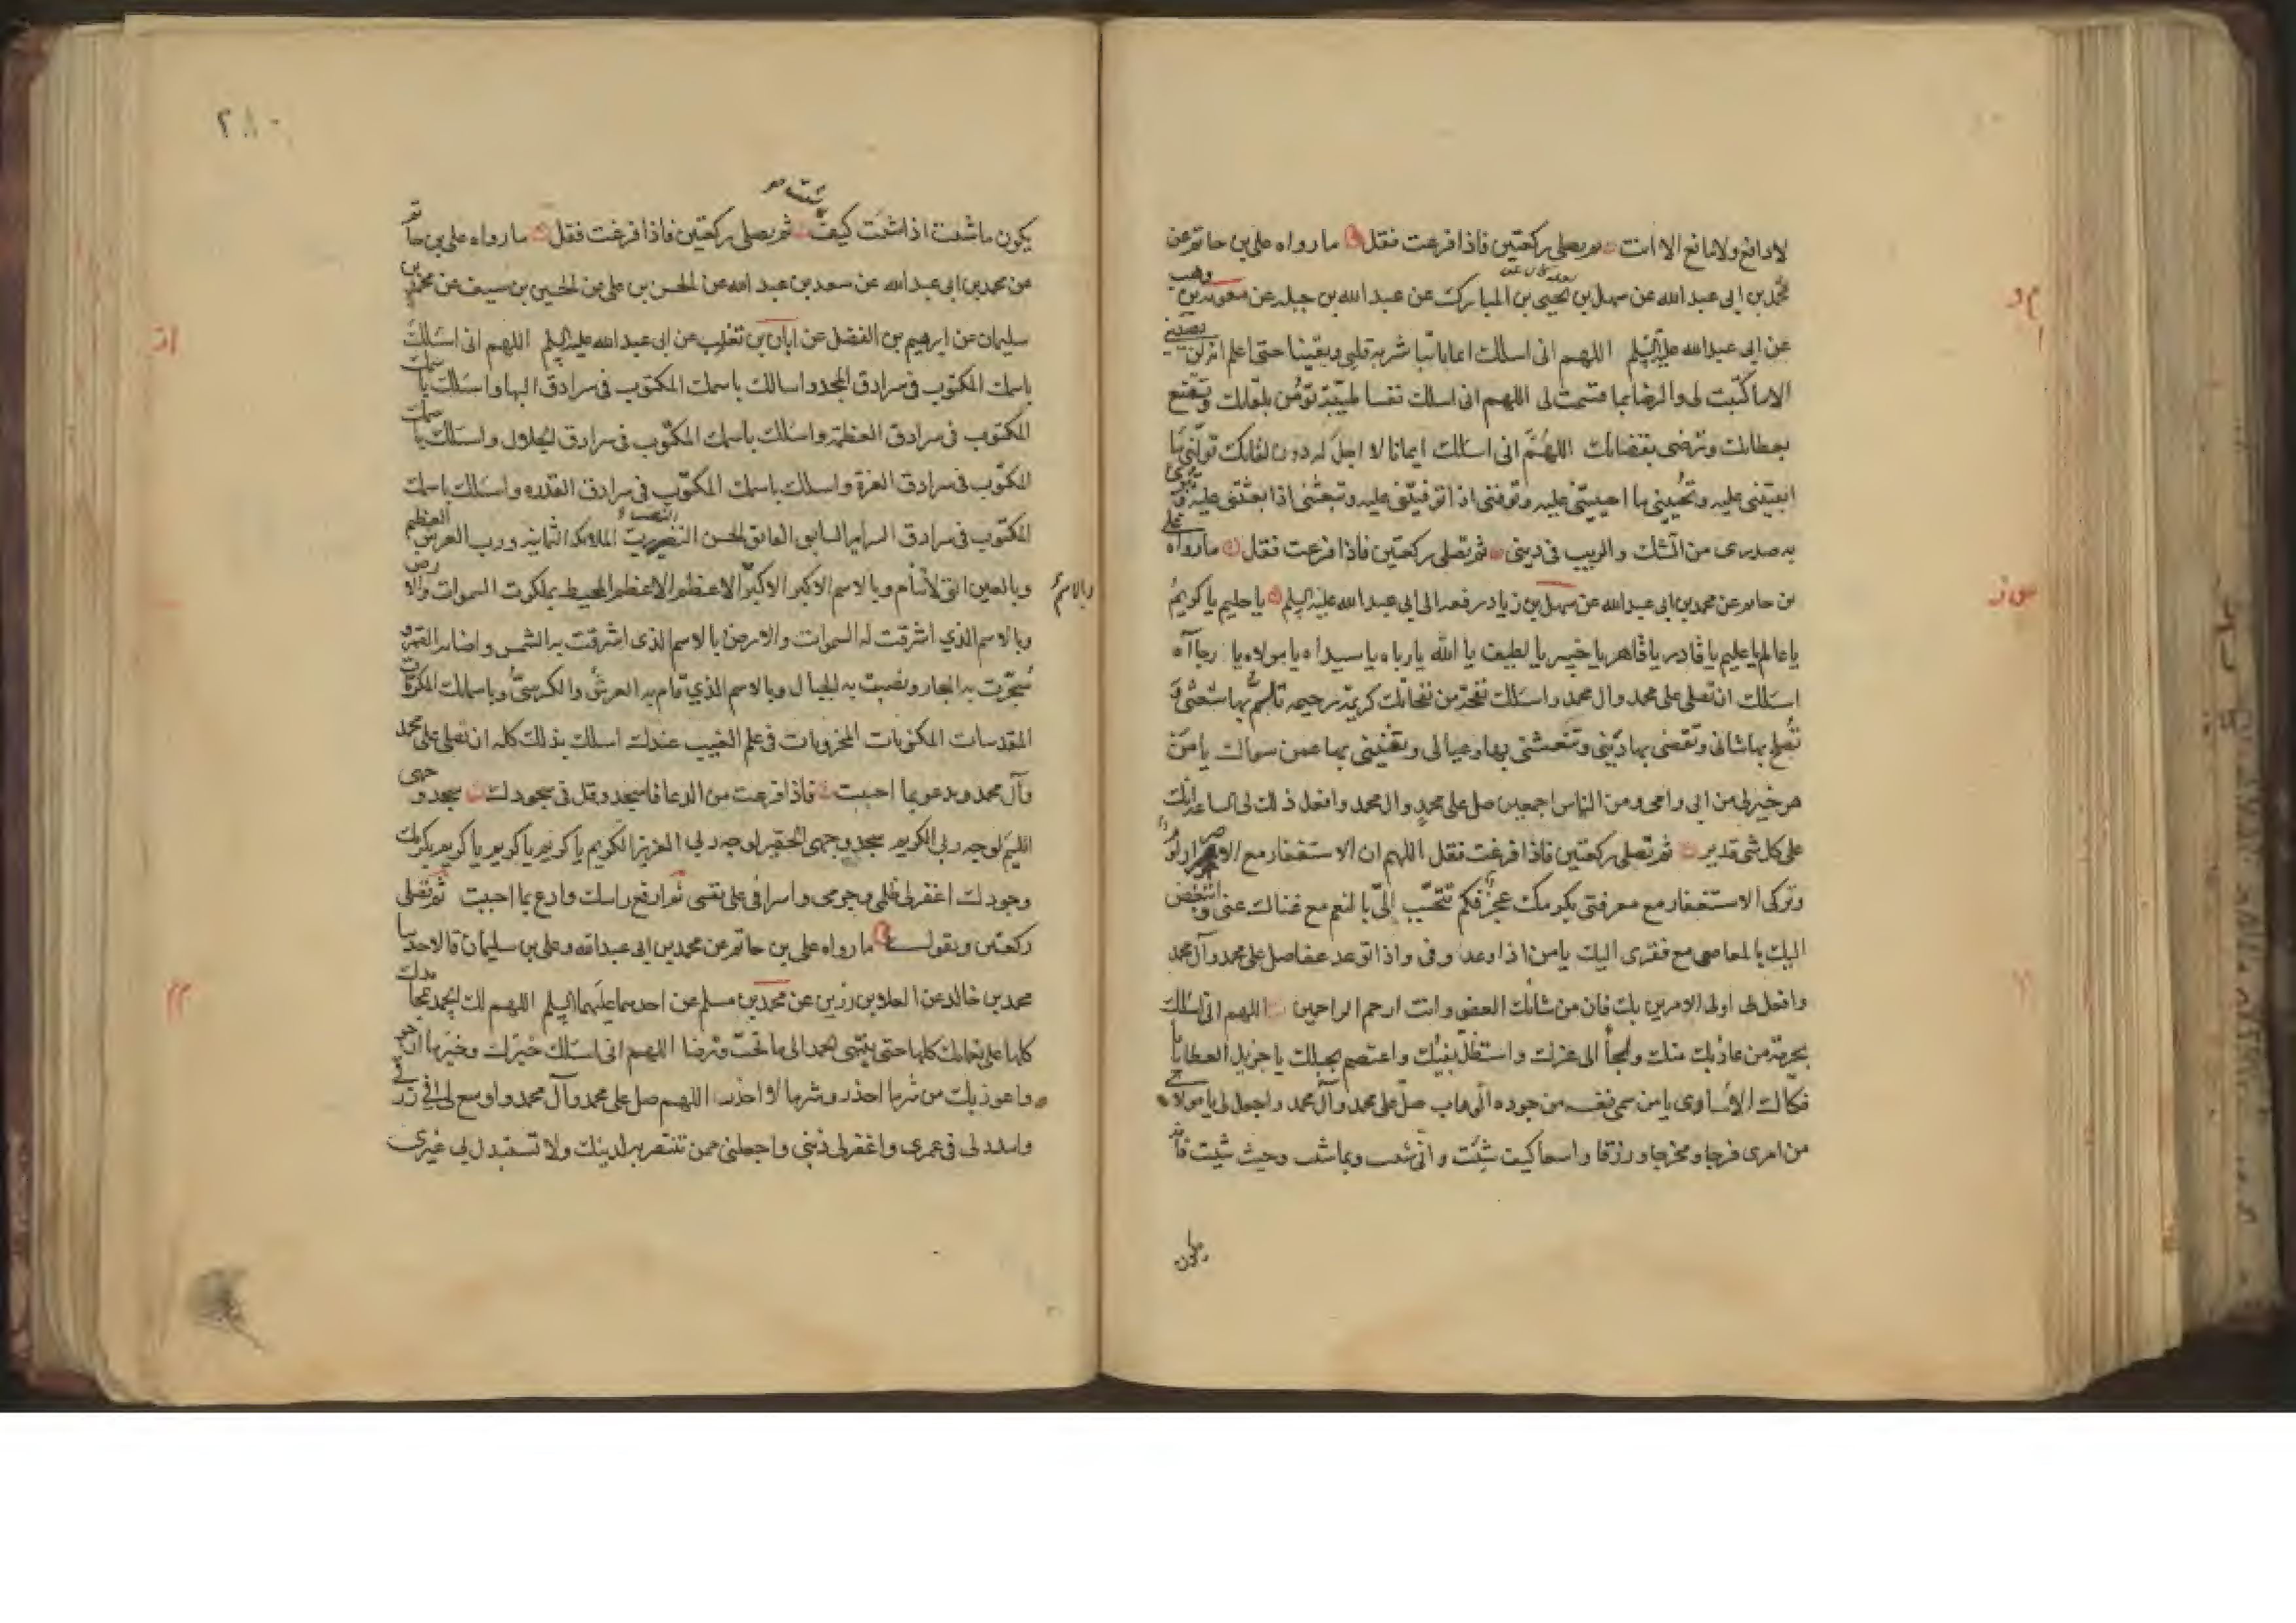 لا دافع ولا مانع الا انت ثم يصلى ركعتين فاذا فرغت فقل ما رواه على بن حاتم عن
محمد بن ابى عبد الله عن سهل بن يحيى بن المبارك عن عبد الله بن جبله عن معويه بن وهب
عن ابى عبد الله عليه السلم اللهم انى اسلك ايمانا تباشر به قلبى ويقينا حتى اعلم انه لن يصيبنى
الا ما كتبت لى والرضا بما قسمت لى اللهم انى اسلك نفسا طيبة تؤمن بلقائك وتقنع
بعطائك وترضى بقضائك اللهم انى اسئلك ايمانا لا اجل له دون لقائك تولنى ما
ابقيتنى عليه وتحيينى ما احييتنى عليه وتوفنى اذا توفيتنى عليه وتبعثنى اذا بعثتنى عليه وتبرئ
به صدرى من الشك والريب فى دينى ثم تصلى ركعتين فاذا فرغت فقل ما رواه على
بن حاتم عن محمد بن ابى عبد الله عن سهل بن زياد رفعه الى ابى عبد الله عليه السلم يا حليم يا كريم
يا عالم يا عليم يا قادر يا قاهر يا خبير يا لطيف يا الله يا رباه يا سيداه يا مولاه يا رجاآه
اسئلك ان تصلى على محمد وال محمد واسئلك نفحة من نفحاتك كريمة رحيمه تلم بها شعثى و
تصلح بها شانى وتقضى بها دينى وتنعشنى بها وعيالى وتغنينى بها عمن سواك يا من
هو خير لى من ابى وامى ومن الناس اجمعين صل على محمد وال محمد وافعل ذلك لى الساعة انك
على كل شى قدير ثم تصلى ركعتين فاذا فرغت فقل اللهم ان الاستغفار مع الاصرار لؤم
وتركى الاستغفار مع معرفتى بكرمك عجز فكم تتحبب الى بالنعم مع غناك عنى واتبغض
اليك بالمعاصى مع فقرى اليك يا من اذا وعد وفى واذا توعد عفا صل على محمد وآل محمد
وافعل لى اولى الامرين بك فان من شانك العفو وانت ارحم الراحمين اللهم انى اسئلك
بحرمة من عاذ بك منك ولجأ الى عزك واستظل بفيئك واعتصم بحبلك يا جزيل العطايا يا
فكاك الاسارى يا من سمى نفسه من جوده الوهاب صل على محمد وآل محمد واجعل لى يا مولاى
من امرى فرجا ومخرجا ورزقا واسعا كيف شئت وانى شئت وبما شئت وحيث شئت فانه
٢٨٠
شئت
يكون ما شئت اذا شئت كيف ثم يصلى ركعتين فاذا فرغت فقل ما رواه على بن حاتم
عن محمد بن ابى عبد الله عن سعد بن عبد الله عن الحسن بن على عن الحسين بن سيف عن محمد بن
سليمان عن ابرهيم بن الفضل عن ابان بن تغلب عن ابى عبد الله عليه السلم اللهم انى اسئلك
باسمك المكتوب فى سرادق المجد واسالك باسمك المكتوب فى سرادق البها واسئلك باسمك
المكتوب فى سرادق العظمة واسئلك باسمك المكتوب فى سرادق الجلال واسئلك باسمك
المكتوب فى سرادق العزة واسلك باسمك المكتوب فى سرادق القدره واسئلك باسمك
المكتوب فى سرادق السراير السابق الفائق الحسن النضير رب الملائكة الثمانية ورب العرش العظيم
وبالعين التى لا تنام وبالاسم الاكبر الاكبر الاعظم الاعظم المحيط بملكوت السموات والارض
وبالاسم
وبالاسم الذي اشرقت له السموات والارض بالاسم الذى اشرقت به الشمس واضاء به القمر و
سجرت به البحار ونصبت به الجبال وبالاسم الذي قام به العرش والكرسى وباسمائك المكرمات
المقدسات المكنونات المخزونات فى علم الغيب عندك اسلك بذلك كله ان تصلى على محمد
وآل محمد وتدعو بما احببت فاذا فرغت من الدعا فاسجد وقل فى سجودك سجد وجهى
اللئيم لوجه ربى الكريم سجد وجهى الحقير لوجه ربى العزيز الكريم يا كريم يا كريم يا كريم بكرمك
وجودك اغفر لى ظلمى وجرمى واسرافى على نفسى ثم ارفع راسك وادع بما احببت ثم تصلى
ركعتين ويقول ما رواه على بن حاتم عن محمد بن ابى عبد الله وعلى بن سليمان قالا حدثنا
محمد بن خالد عن العلا بن رزين عن محمد بن مسلم عن احدهما عليهما السلم اللهم لك الحمد بمحامدك
كلها على نعمائك كلها حتى ينتهى الحمد الى ما تحب وترضا اللهم انى اسئلك خيرك وخير ما ارجو
واعوذ بك من شر ما احذر وشر ما لا احذر اللهم صل على محمد وآل محمد واوسع لى فى رزقى
وامدد لى فى عمرى واغفر لى ذنبى واجعلنى ممن تنتصر به لدينك ولا تستبدل بى غيرى